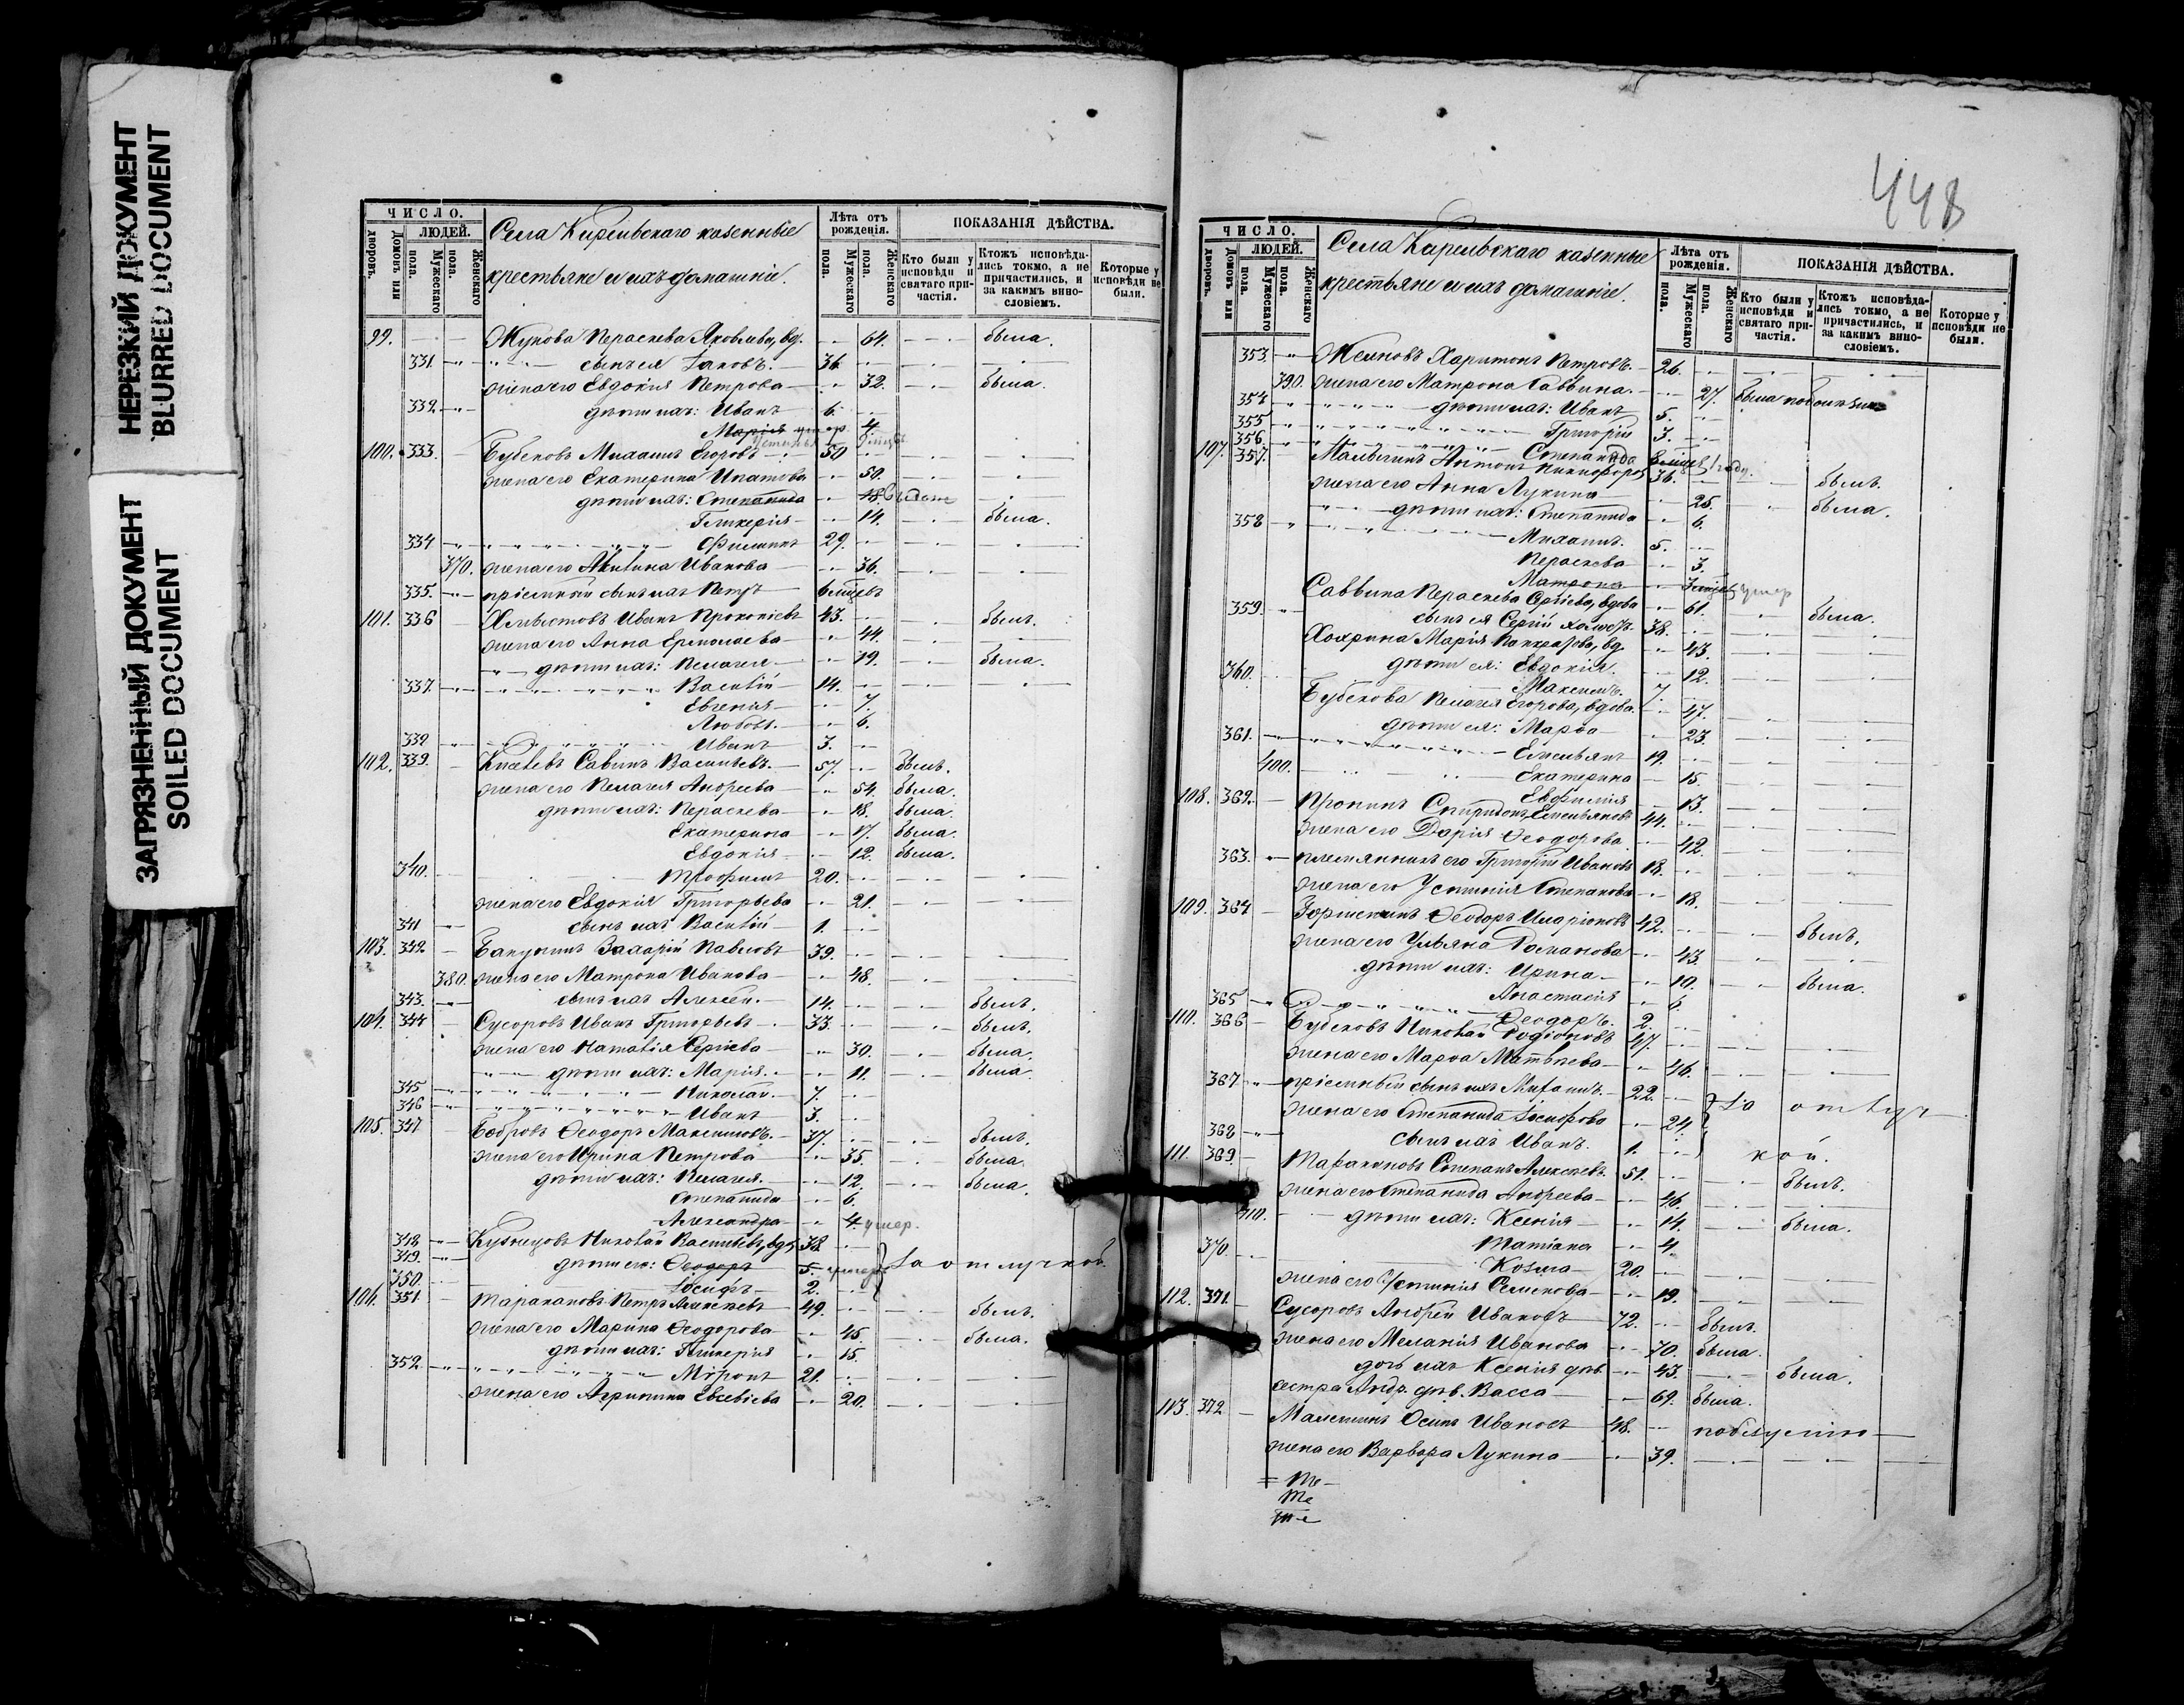 НЕРЕЗКИЙ ДОКУМЕНТ
BLURRED DOCUMENT
ЗАГРЯЗНЕННЫЙ ДОКУМЕНТ
SOILED DOCUMENT
ЧИСЛО.
ЛЮДЕЙ.
Домовъ или дворовъ.
Мужескаго пола.
Женскаго пола.
Села казенные
крестьяне и ихъ домашніе.
Лѣта отъ рожденія.
Мужескаго пола.
Женскаго пола.
ПОКАЗАНІЯ ДѢЙСТВА.
Кто были у исповѣди и святаго причастія.
Ктожъ исповѣдались токмо, а не причастились, и за какимъ винословіемъ.
Которые у исповѣди не были.
99. Жукова Параскева Яковлева, вд. 64. была.
331. сынъ ея Іаковъ. 36.
жена его Евдокія Петрова 32. была.
332. дѣти ихъ: Иванъ 6.
Марія умер. 4.
100. 333. Бубековъ Михаилъ Егоровъ 50
жена его Екатерина Ипатова 50.
дѣти ихъ: Степанида 18.
Гликерія 14. была.
334 Филиппъ 29.
370. жена его Акилина Иванова 36.
335. пріемный сынъ ихъ Петръ 6 мѣсяцевъ
101. 336 Иванъ Прокопіевъ 43. былъ.
жена его Анна Ермолаева 44.
дѣти ихъ: Пелагея 19. была.
337. Василій 14.
Евгенія 7.
Любовь 6.
338 Иванъ 3.
102. 339. Киселевъ Савинъ Васильевъ. 57. былъ.
жена его Пелагея Андреева 54. была.
дѣти ихъ: Параскева 18. была.
Екатерина 17. была.
Евдокія 12. была.
340. Трофимъ 20.
жена его Евдокія Григорьева 21.
341 сынъ ихъ Василій 1.
103. 342. Бакунинъ Захарій Павловъ 39.
380. жена его Матрона Иванова 48.
343. сынъ ихъ Алексѣй. 14. былъ.
104. 344 Сусоровъ Иванъ Григорьевъ 33. былъ.
жена его Наталія Сергіева 30. была.
дѣти ихъ: Марія. 11. была.
345 Николай. 7.
346 Иванъ 3.
105. 347 Бобровъ Ѳеодоръ Максимовъ. 37. былъ.
жена его Ирина Петрова 35. была.
дѣти ихъ: Пелагея. 12. была.
Степанида 6.
Александра 4. умер.
348 Кузнецовъ Николай Васильевъ, вд. 38.
349. дѣти его: Ѳеодоръ 5. За отлучкой.
350. Іосифъ 2.
106. 351. Таракановъ Петръ Алексѣевъ 49. былъ.
жена его Марина Ѳеодорова 45. была.
дѣти ихъ: Гликерія 15.
352. Миронъ 21.
жена его Агрипина Евсевіева 20.
448
ЧИСЛО.
ЛЮДЕЙ.
Домовъ или дворовъ.
Мужескаго пола.
Женскаго пола.
Села казенные
крестьяне и ихъ домашніе.
Лѣта отъ рожденія.
Мужескаго пола.
Женскаго пола.
ПОКАЗАНІЯ ДѢЙСТВА.
Кто были у исповѣди и святаго причастія.
Ктожъ исповѣдались токмо, а не причастились, и за какимъ винословіемъ.
Которые у исповѣди не были.
353. Харитонъ Петровъ. 26.
390. жена его Матрона Саввина. 27. была
354 дѣти ихъ: Иванъ 5.
355 Григорій 3.
356. Степанида
107. 357. Антонъ Никифоровъ 36. былъ.
жена его Анна Лукина 25. была.
дѣти ихъ: Степанида 6.
358 Михаилъ. 5.
Параскева 3.
Матрона умер
Саввина Параскева Сергіева, вдова 61. была.
359 сынъ ея Сергій холостъ. 38.
Хохрина Марія Панкратова, вд. 43.
дѣти ея: Евдокія. 12.
360. Максимъ. 7.
Бубекова Пелагея Егорова, вдова. 47.
дѣти ея: Марѳа 23.
361. Емельянъ 19.
400. Екатерина 15.
Евфимія 13.
108. 362. Пронинъ Спиридонъ Емельяновъ 44.
жена его Дарія Ѳеодорова 42.
363. племянникъ его Григорій Ивановъ 18.
жена его Устинія Степанова 18.
109. 364 Ѳеодоръ Иларіоновъ 42. былъ.
жена его Ульяна Романова 43.
дѣти ихъ: Ирина 10. была.
Анастасія 6.
365 Ѳеодоръ. 2.
110. 366 Бубековъ Николай Родіоновъ 47.
жена его Марѳа Матвѣева 46.
367 пріемный сынъ ихъ 22. За отлуч
жена его Степанида Іосифова 24.
368 сынъ ихъ Иванъ. 1. кой.
111. 369. Таракановъ Степанъ Алексѣевъ. 51. былъ.
жена его Степанида Андреева 46.
410. дѣти ихъ: Ксенія 14. была.
Татіана 4.
370. Козма 20.
жена его Устинія Семенова 19.
112. 371. Сусоровъ Андрей Ивановъ 72. былъ.
жена его Меланія Иванова 70. была.
дочь ихъ Ксенія дѣв. 43. была.
сестра Андр. дѣв. Васса 69. была.
113. 372 Осипъ Ивановъ 48.
жена его Варвара Лукина 39.